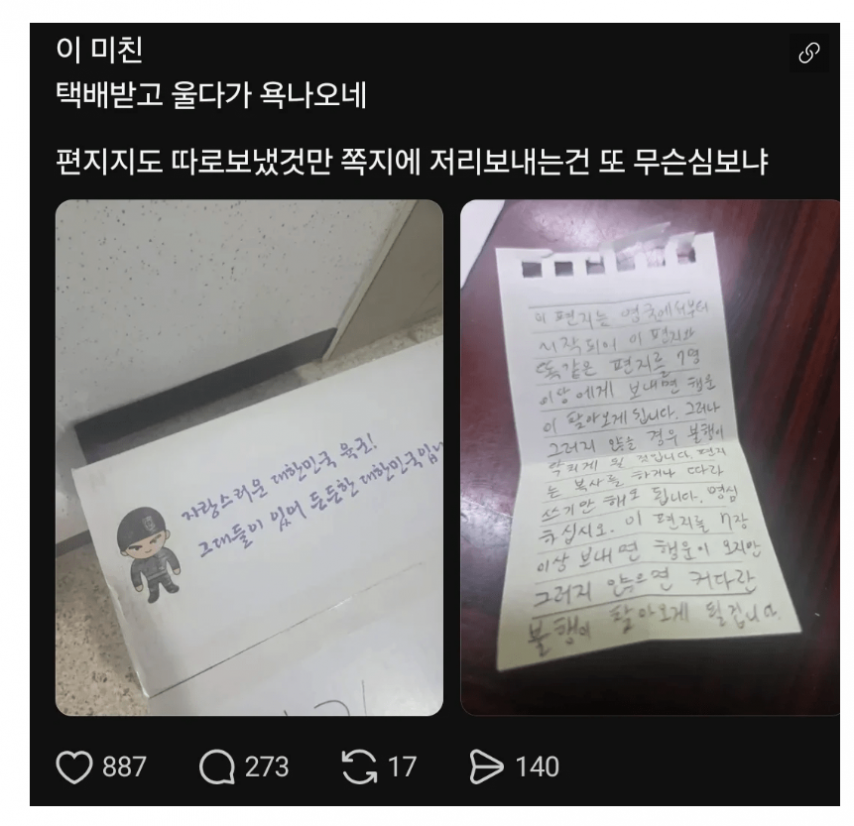 이 미친
택배받고 울다가 욕나오네
편지지도 따로보냈것만 쪽지에 저리보내는건 또 무슨심보냐
자랑스러운 대한민국 육군!
그대들이 있어 든든한 대한민국입니
이 편지는 영국에서부터
시작되어 이 편지와
똑같은 편지를 7명
이상에게 보내면 행운
이 찾아보게 됩니다. 그러나
그러지 않을 경우 불행이
닥치게 될 것입니다. 편지
는 복사를 하거나 따라
쓰기만 해도 됩니다. 명심
하십시오. 이 편지를 7장
이상 보내면 행운이 오지만
그러지 않으면 커다란
불행이 찾아오게 될겁니다.
887
273
17
140